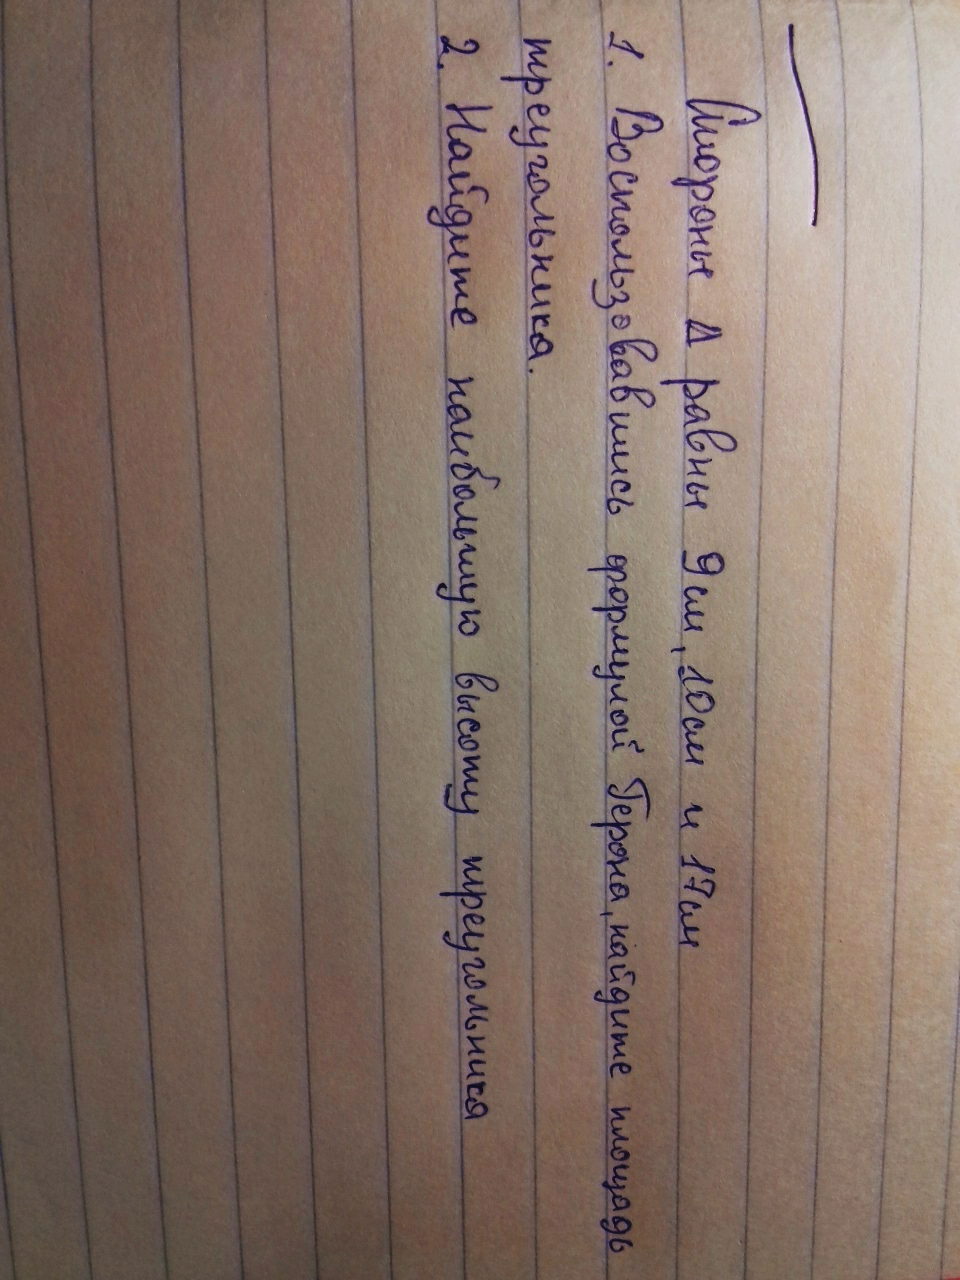 Стороны Δ равны 9см, 10см и 17см
1. Воспользовавшись формулой Герона, найдите площадь
треугольника.
2. Найдите наибольшую высоту треугольника